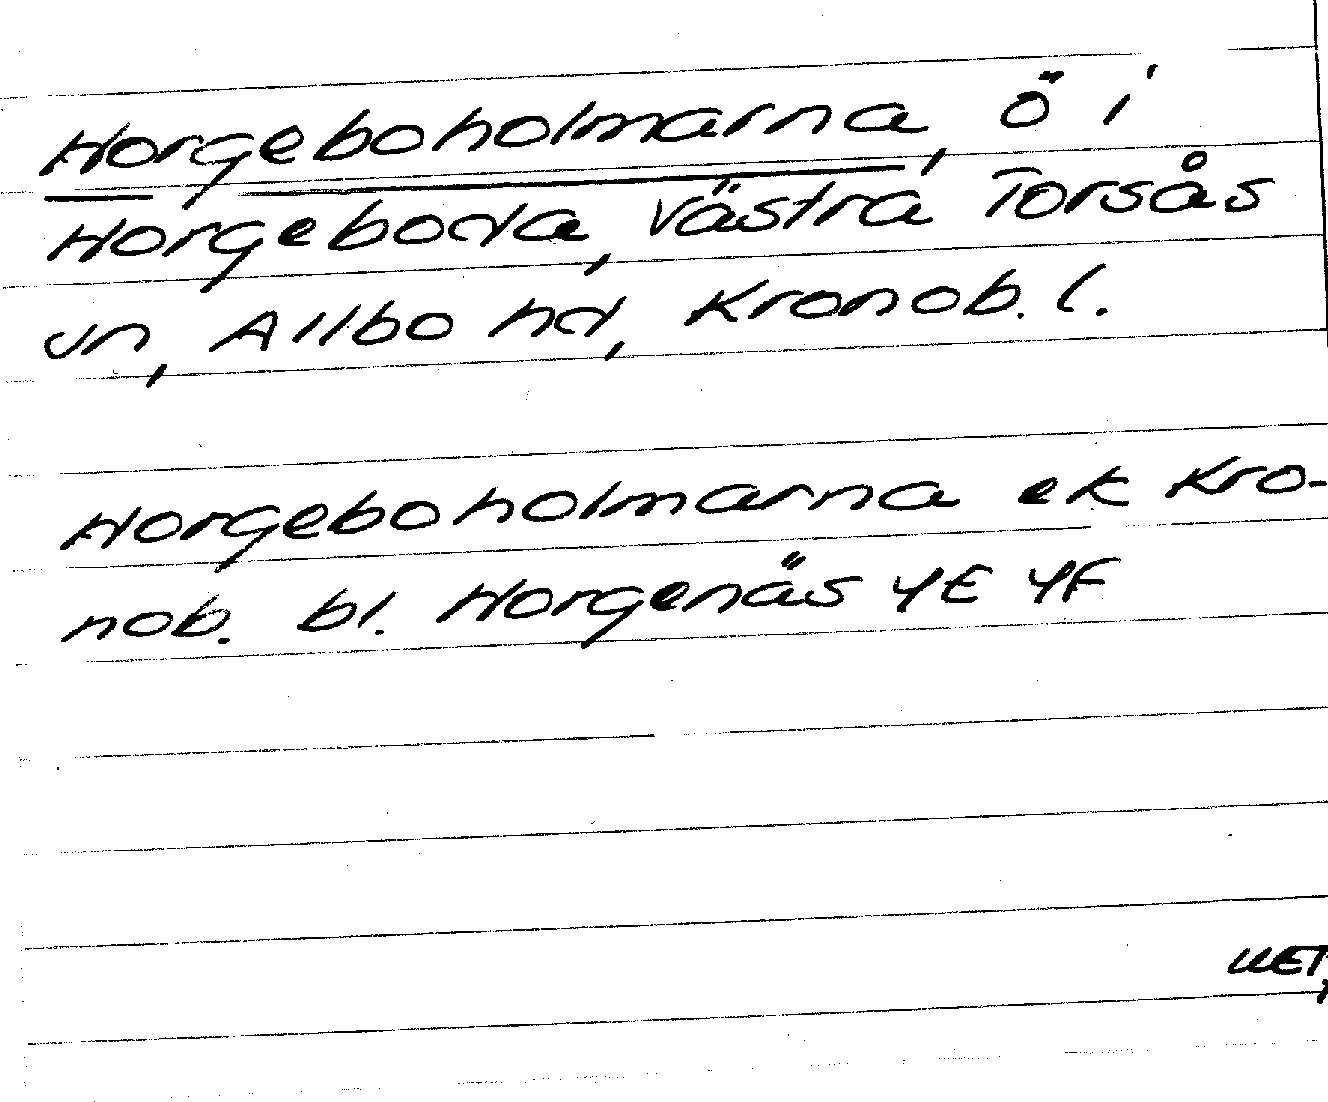 Horgeboholmarna, ö i
Horgeboda, Västra Torsås
sn, Allbo hd, Kronob. l.
Horgeboholmarna ek Kro-
nob. bl. Horgenäs 4E 4F